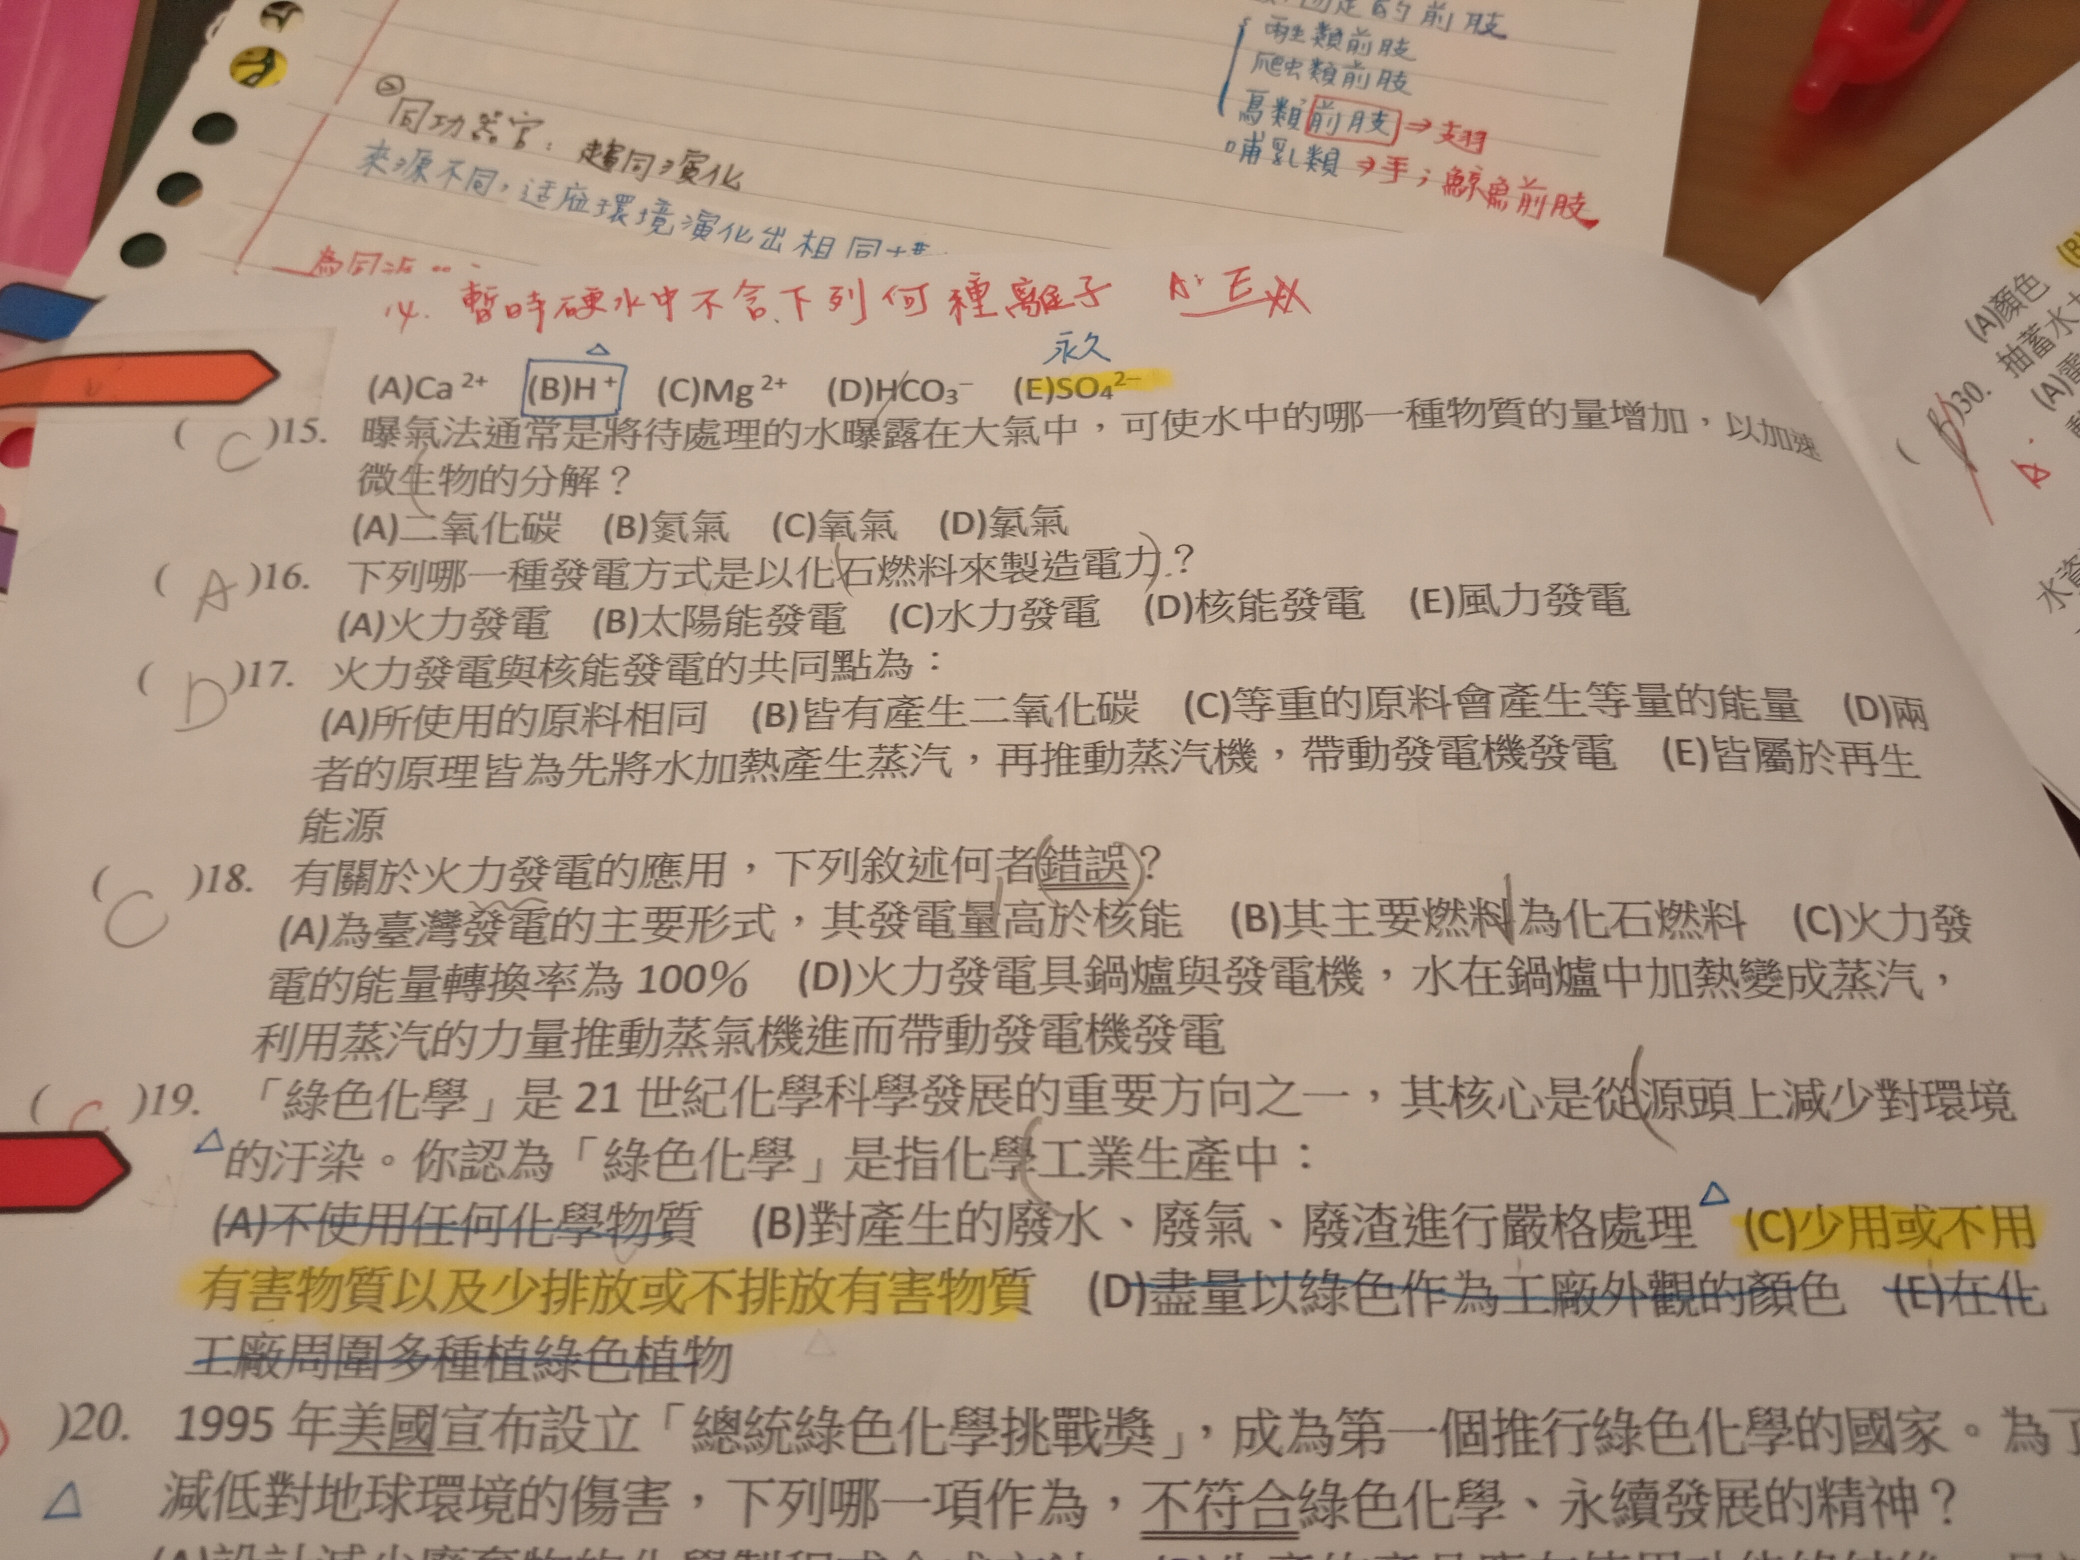 的前肢
兩生類前肢
爬虫類前肢
鳥類前肢⇒翅
哺乳類⇒手；鯨魚前肢
② 同功器官：趨同演化
來源不同，适应環境演化出相同
為同源
14. 暫時硬水中不含下列何種離子 A: E
永久
(A)Ca²⁺ (B)H⁺ (C)Mg²⁺ (D)HCO₃⁻ (E)SO₄²⁻
( C )15. 曝氣法通常是將待處理的水曝露在大氣中，可使水中的哪一種物質的量增加，以加速
微生物的分解？
(A)二氧化碳 (B)氮氣 (C)氧氣 (D)氯氣
( A )16. 下列哪一種發電方式是以化石燃料來製造電力？
(A)火力發電 (B)太陽能發電 (C)水力發電 (D)核能發電 (E)風力發電
( D )17. 火力發電與核能發電的共同點為：
(A)所使用的原料相同 (B)皆有產生二氧化碳 (C)等重的原料會產生等量的能量 (D)兩
者的原理皆為先將水加熱產生蒸汽，再推動蒸汽機，帶動發電機發電 (E)皆屬於再生
能源
( C )18. 有關於火力發電的應用，下列敘述何者錯誤？
(A)為臺灣發電的主要形式，其發電量高於核能 (B)其主要燃料為化石燃料 (C)火力發
電的能量轉換率為 100% (D)火力發電具鍋爐與發電機，水在鍋爐中加熱變成蒸汽，
利用蒸汽的力量推動蒸氣機進而帶動發電機發電
( C )19. 「綠色化學」是 21 世紀化學科學發展的重要方向之一，其核心是從源頭上減少對環境
的汙染。你認為「綠色化學」是指化學工業生產中：
(A)不使用任何化學物質 (B)對產生的廢水、廢氣、廢渣進行嚴格處理 (C)少用或不用
有害物質以及少排放或不排放有害物質 (D)盡量以綠色作為工廠外觀的顏色 (E)在化
工廠周圍多種植綠色植物
)20. 1995 年美國宣布設立「總統綠色化學挑戰獎」，成為第一個推行綠色化學的國家。為了
減低對地球環境的傷害，下列哪一項作為，不符合綠色化學、永續發展的精神？
(B)
(A)顏色
( B )30. 抽蓄水
(A)
A
水資